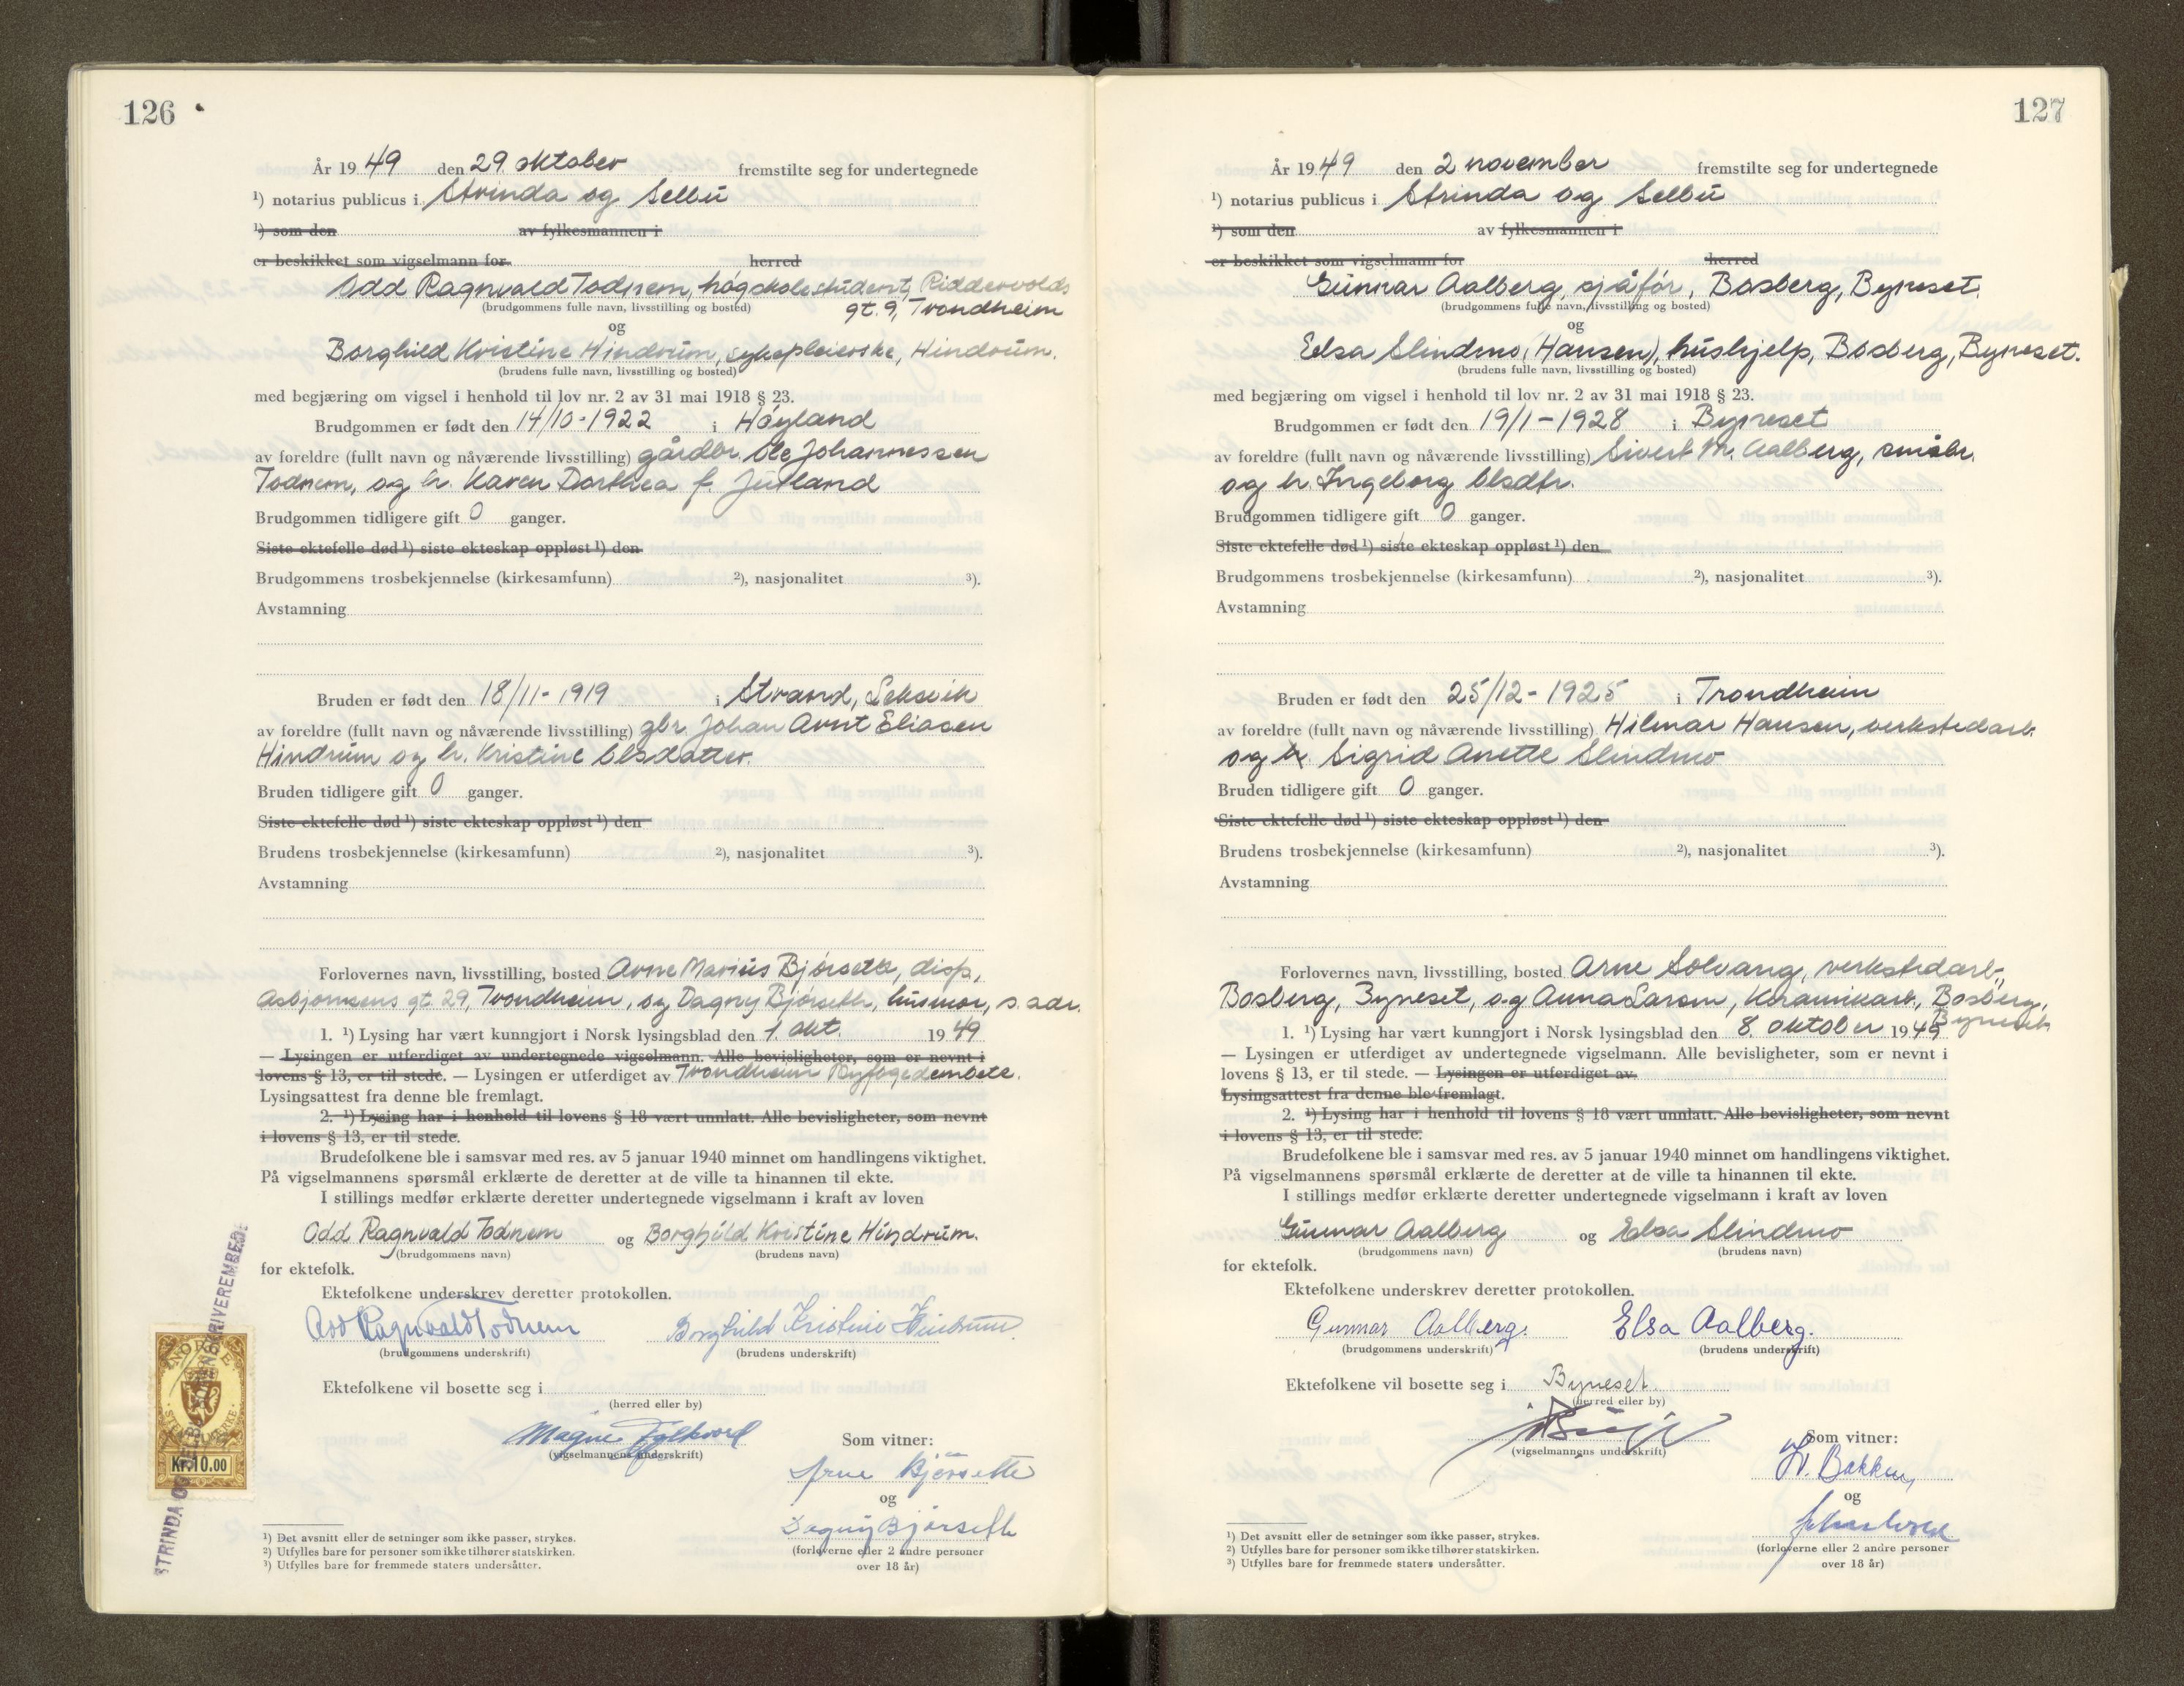 126
År 1949 den 29. oktober fremstilte seg for undertegnede
¹) notarius publicus i Strinda og Selbu
¹) som den av fylkesmannen i
er beskikket som vigselmann for herred
Odd Ragnvald Todnem, høgskolestudent, Riddervolds
(brudgommens fulle navn, livsstilling og bosted) gt. 9, Trondheim
og
Borghild Kristine Hindrum, sykepleierske, Hindrum.
(brudens fulle navn, livsstilling og bosted)
med begjæring om vigsel i henhold til lov nr. 2 av 31 mai 1918 § 23.
Brudgommen er født den 14/10-1922 i Høyland
av foreldre (fullt navn og nåværende livsstilling) gårdbr. Ole Johannessen
Todnem, og h. Karen Dorthea f. Jutland
Brudgommen tidligere gift 0 ganger.
Siste ektefelle død ¹) siste ekteskap oppløst ¹) den
Brudgommens trosbekjennelse (kirkesamfunn) ²), nasjonalitet ³).
Avstamning
Bruden er født den 18/11-1919 i Strand, Leksvik
av foreldre (fullt navn og nåværende livsstilling) gbr. Johan Arnt Eliasen
Hindrum og h. Kristine Olsdatter.
Bruden tidligere gift 0 ganger.
Siste ektefelle død ¹) siste ekteskap oppløst ¹) den
Brudens trosbekjennelse (kirkesamfunn) ²), nasjonalitet ³).
Avstamning
Forlovernes navn, livsstilling, bosted Arne Marius Bjørseth, disp.,
Asbjørnsens gt. 29, Trondheim, og Dagny Bjørseth, husmor, s. adr.
1. ¹) Lysing har vært kunngjort i Norsk lysingsblad den 1. okt. 1949
— Lysingen er utferdiget av undertegnede vigselmann. Alle bevisligheter, som er nevnt i
lovens § 13, er til stede. — Lysingen er utferdiget av Trondheim Byfogedembete.
Lysingsattest fra denne ble fremlagt.
2. ¹) Lysing har i henhold til lovens § 18 vært unnlatt. Alle bevisligheter, som nevnt
i lovens § 13, er til stede.
Brudefolkene ble i samsvar med res. av 5 januar 1940 minnet om handlingens viktighet.
På vigselmannens spørsmål erklærte de deretter at de ville ta hinannen til ekte.
I stillings medfør erklærte deretter undertegnede vigselmann i kraft av loven
Odd Ragnvald Todnem og Borghild Kristine Hindrum.
(brudgommens navn) (brudens navn)
for ektefolk.
Ektefolkene underskrev deretter protokollen.
Odd Ragnvald Todnem Borghild Kristine Hindrum.
(brudgommens underskrift) (brudens underskrift)
Ektefolkene vil bosette seg i
(herred eller by)
Magne Folkvord Som vitner:
(vigselmannens underskrift)
Arne Bjørseth
og
Dagny Bjørseth
(forloverne eller 2 andre personer
over 18 år)
¹) Det avsnitt eller de setninger som ikke passer, strykes.
²) Utfylles bare for personer som ikke tilhører statskirken.
³) Utfylles bare for fremmede staters undersåtter.
NORGE
Kr. 10.00
STRINDA OG SELBU SORENSKRIVEREMBEDE
127
År 1949 den 2 november fremstilte seg for undertegnede
¹) notarius publicus i Strinda og Selbu
¹) som den av fylkesmannen i
er beskikket som vigselmann for herred
Gunnar Aalberg, sjåfør, Bosberg, Byneset.
(brudgommens fulle navn, livsstilling og bosted)
og
Elsa Slindmo (Hansen), hushjelp, Bosberg, Byneset.
(brudens fulle navn, livsstilling og bosted)
med begjæring om vigsel i henhold til lov nr. 2 av 31 mai 1918 § 23.
Brudgommen er født den 19/1-1928 i Byneset
av foreldre (fullt navn og nåværende livsstilling) Sivert M. Aalberg, småbr.
og h. Ingeborg Olsdtr.
Brudgommen tidligere gift 0 ganger.
Siste ektefelle død ¹) siste ekteskap oppløst ¹) den
Brudgommens trosbekjennelse (kirkesamfunn) ²), nasjonalitet ³).
Avstamning
Bruden er født den 25/12-1925 i Trondheim
av foreldre (fullt navn og nåværende livsstilling) Hilmar Hansen, verkstedarb.
og h. Sigrid Anette Slindmo
Bruden tidligere gift 0 ganger.
Siste ektefelle død ¹) siste ekteskap oppløst ¹) den
Brudens trosbekjennelse (kirkesamfunn) ²), nasjonalitet ³).
Avstamning
Forlovernes navn, livsstilling, bosted Arne Solvang, verkstedarb.,
Bosberg, Byneset, og Anna Larsen, Keramikarb., Bosberg,
Byneset
1. ¹) Lysing har vært kunngjort i Norsk lysingsblad den 8. oktober 1949
— Lysingen er utferdiget av undertegnede vigselmann. Alle bevisligheter, som er nevnt i
lovens § 13, er til stede. — Lysingen er utferdiget av
Lysingsattest fra denne ble fremlagt.
2. ¹) Lysing har i henhold til lovens § 18 vært unnlatt. Alle bevisligheter, som nevnt
i lovens § 13, er til stede.
Brudefolkene ble i samsvar med res. av 5 januar 1940 minnet om handlingens viktighet.
På vigselmannens spørsmål erklærte de deretter at de ville ta hinannen til ekte.
I stillings medfør erklærte deretter undertegnede vigselmann i kraft av loven
Gunnar Aalberg og Elsa Slindmo
(brudgommens navn) (brudens navn)
for ektefolk.
Ektefolkene underskrev deretter protokollen.
Gunnar Aalberg. Elsa Aalberg.
(brudgommens underskrift) (brudens underskrift)
Ektefolkene vil bosette seg i Byneset
(herred eller by)
Som vitner:
(vigselmannens underskrift)
Bakken
og
(forloverne eller 2 andre personer
over 18 år)
¹) Det avsnitt eller de setninger som ikke passer, strykes.
²) Utfylles bare for personer som ikke tilhører statskirken.
³) Utfylles bare for fremmede staters undersåtter.